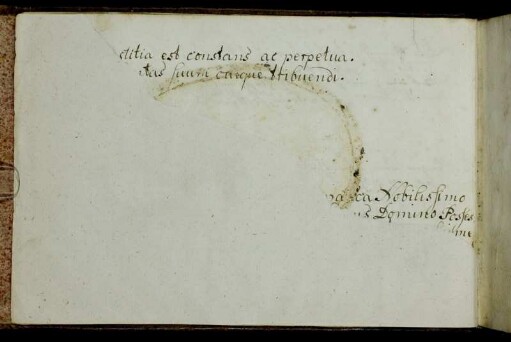 ctitia est constans ac perpetua.
tas suum cuique tribuendi.
Nobilissimo
Domino Posses